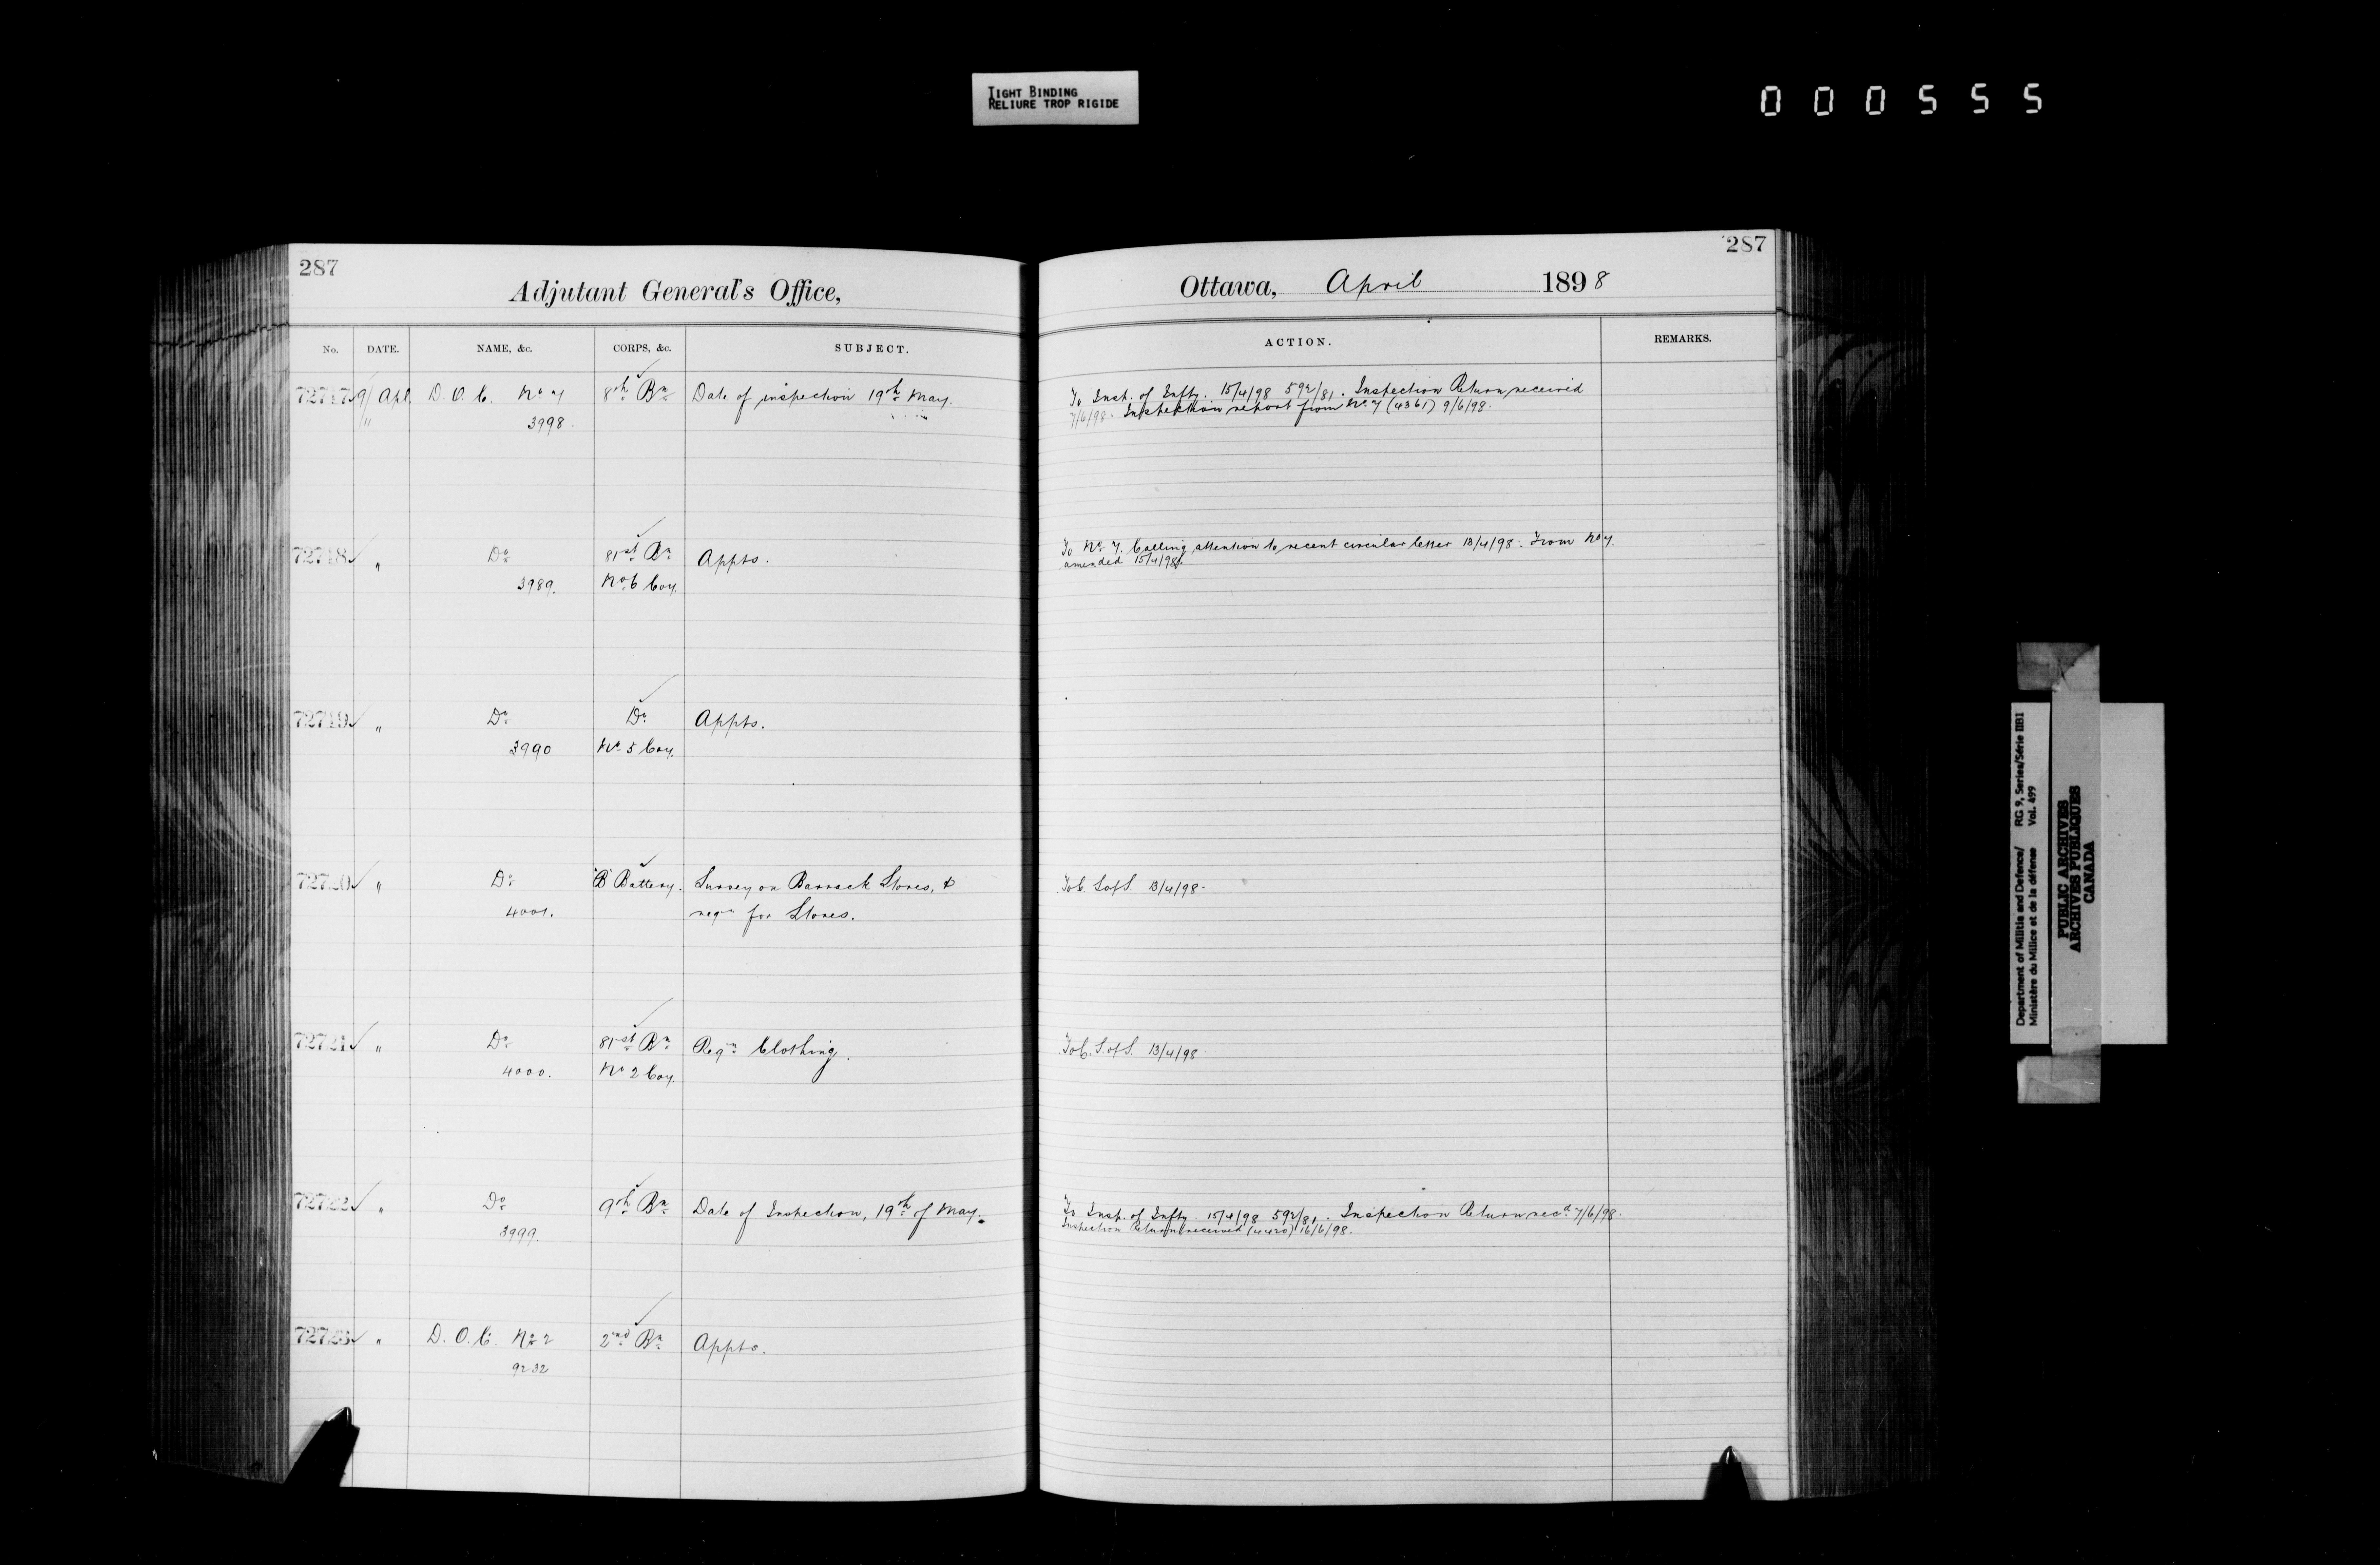 TIGHT BINDING
RELIURE TROP RIGIDE
000555
287
Adjutant General's Office,
No. DATE. NAME, &c. CORPS, &c. SUBJECT.
72717 9/ Apl. D. O. C. No 7 8th Bn Date of inspection 19th May.
" 3998.
72718 " Do 81st Bn Appts.
3989. No 6 Coy.
72719 " Do Do Appts.
3990 No 5 Coy.
72720 " Do "B" Battery. Survey on Barrack Stores, &
4001. reqn for Stores.
72721 " Do 81st Bn Reqn Clothing.
4000. No 2 Coy.
72722 " Do 9th Bn Date of Inspection, 19th of May.
3999.
72723 " D. O. C. No 2 2nd Bn Appts.
9232
287
Ottawa, April 1898
ACTION. REMARKS.
To Insp. of Infty. 15/4/98 592/81. Inspection Return received
7/6/98. Inspection report from No 7 (4361) 9/6/98.
To No 7. Calling attention to recent circular letter 13/4/98. From No 7.
amended 15/4/98.
To C. S. of S. 13/4/98.
To C. S. of S. 13/4/98
To Insp. of Infty. 15/4/98 592/81. Inspection Return recd 7/6/98.
Inspection Return received (4420) 16/6/98.
Department of Militia and Defence/ RG 9, Series/Série IIB1
Ministère du Milice et de la défense Vol. 499
PUBLIC ARCHIVES
ARCHIVES PUBLIQUES
CANADA